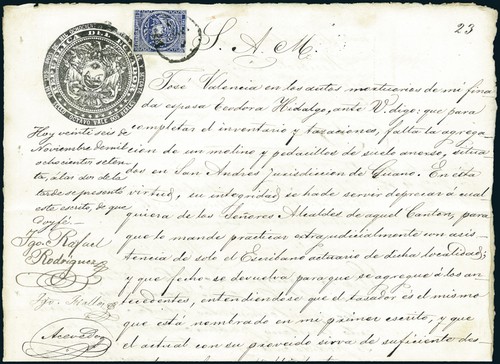 23
S. A. M.
REPUBLICA DEL ECUADOR
José Valencia en los autos mortuorios de mi fina
da esposa Teodora Hidalgo, ante V. digo: que para
completar el inventario y tasaciones, falta la agrega
cion de un molino y pedacillos de suelo anexo, situa
dos en San Andrés jurisdiccion de Guano. En esta
virtud, su integridad se ha de servir deprecar á cual
quiera de los Señores Alcaldes de aquel Canton, para
que lo mande practicar extrajudicialmente con asis
tencia de solo el Escribano actuario de dicha localidad;
y que fecho se devuelva para que se agregue á los an
tecedentes, entendiendose que el tasador es el mismo
que está nombrado en mi primer escrito, y que
el actual con su proveido sirva de suficiente des
Hoy veinte seis de
Noviembre de mil
ochocientos seten
ta, á las dos de la
tarde se presentó
este escrito, de que
doy fé.
Tgo. Rafael
Rodriguez
Tgo.